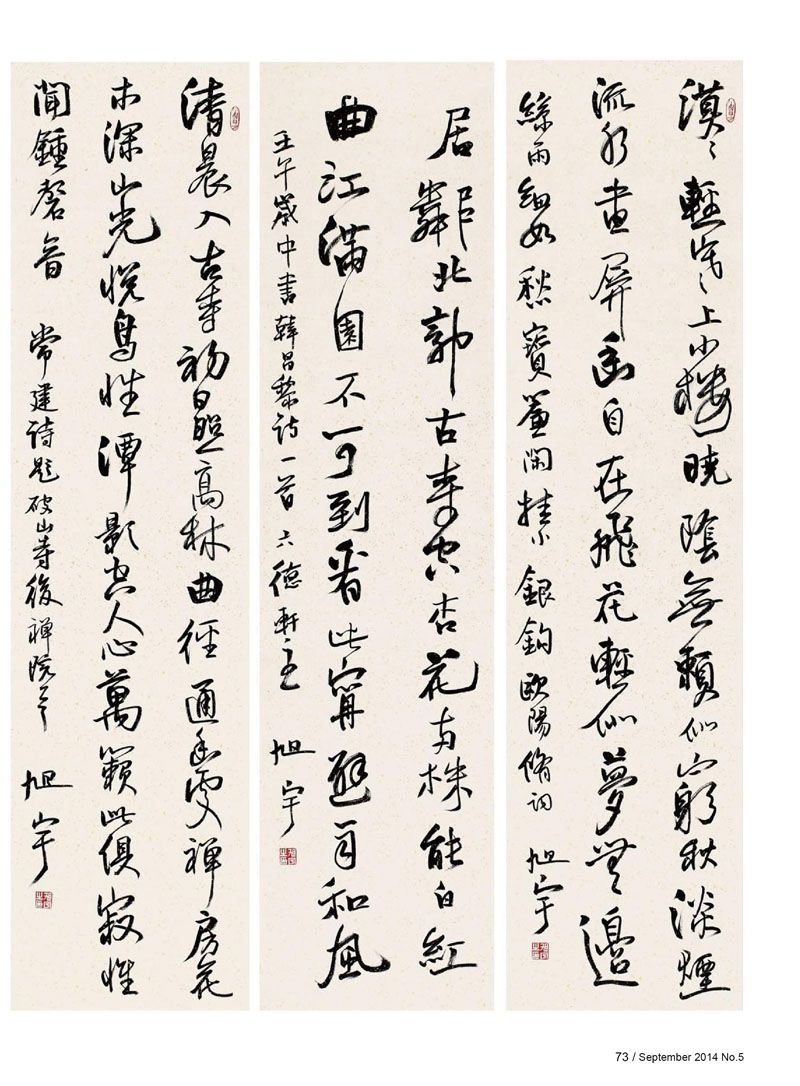 漠〻輕寒〻上小樓曉陰無賴似窮秋淡煙
流水畫屏幽自在飛花輕似夢無邊
絲雨細如愁寶簾閑掛小銀鈎歐陽脩詞 旭宇
居鄰北郭古寺空杏花兩株能白紅
曲江滿園不可到看此寧避雨和風
壬午歲中書韓昌黎詩一首六德軒主 旭宇
清晨入古寺初日照高林曲徑通幽處禪房花
木深山光悅鳥性潭影空人心萬籟此俱寂惟
聞鍾磬音 常建詩題破山寺後禪院 旭宇
73 / September 2014 No.5